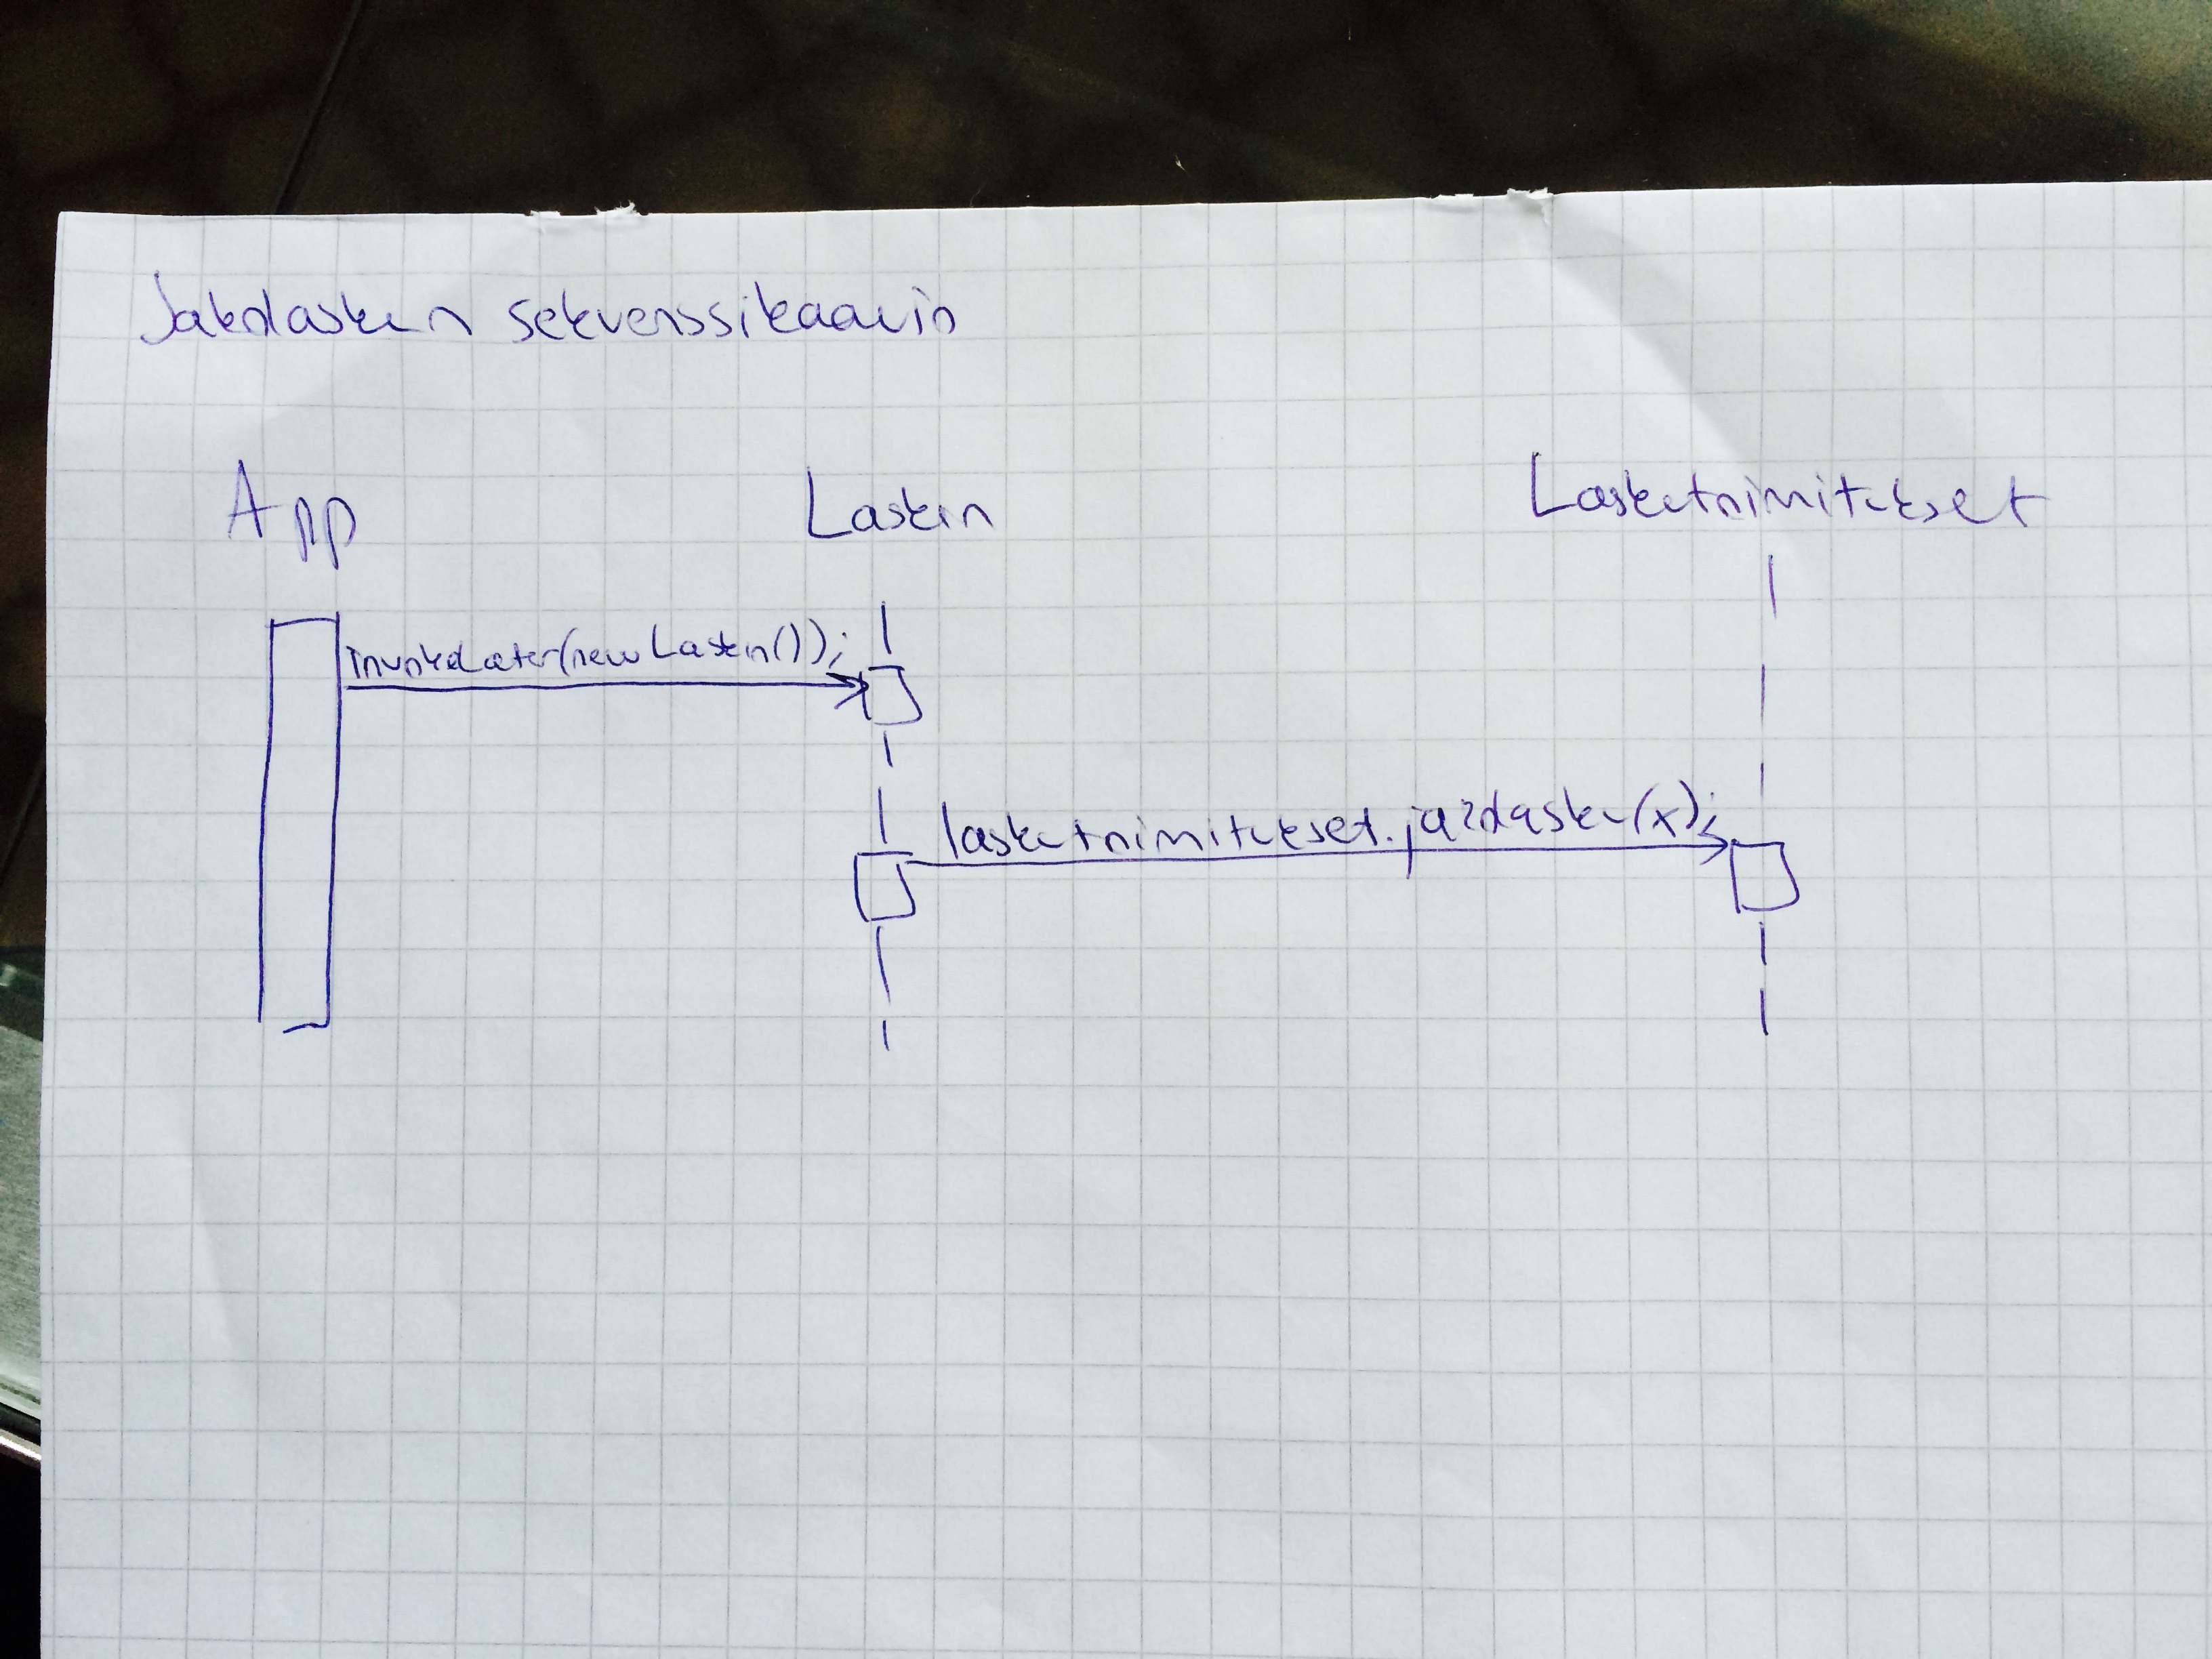 Jakolaskun sekvenssikaavio
App Laskin Laskutoimitukset
invokeLater(new Laskin());
laskutoimitukset.jakolasku(x);